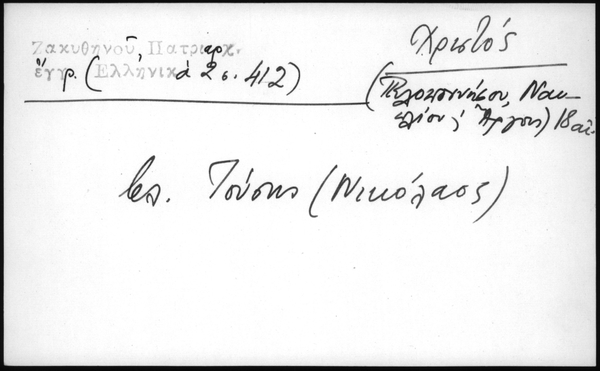 Ζακυθηνοῦ, Πατριαρχ.
ἔγγρ. (Ἑλληνικά 2 σ. 412)
Χριστός
(Πελοποννήσου, Ναυ-
πλίου ἤ Ἄργους) 18 αἰ.
βλ. Τούσης (Νικόλαος)